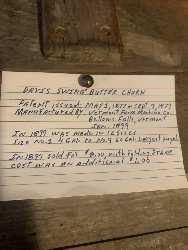 DAVIS SWING BUTTER CHURN
Patent issued: MAY 1, 1877 & Sept. 9, 1879
Manufactured By Vermont Farm Machine Co.
Bellows Falls, Vermont
JAN. 1899
IN 1899 was made in 10 sizes
Size No. 1 4 Gal to No. 9 60 Gal Largest
IN 1899 Sold for with Folding Frame
cost was AN Additional